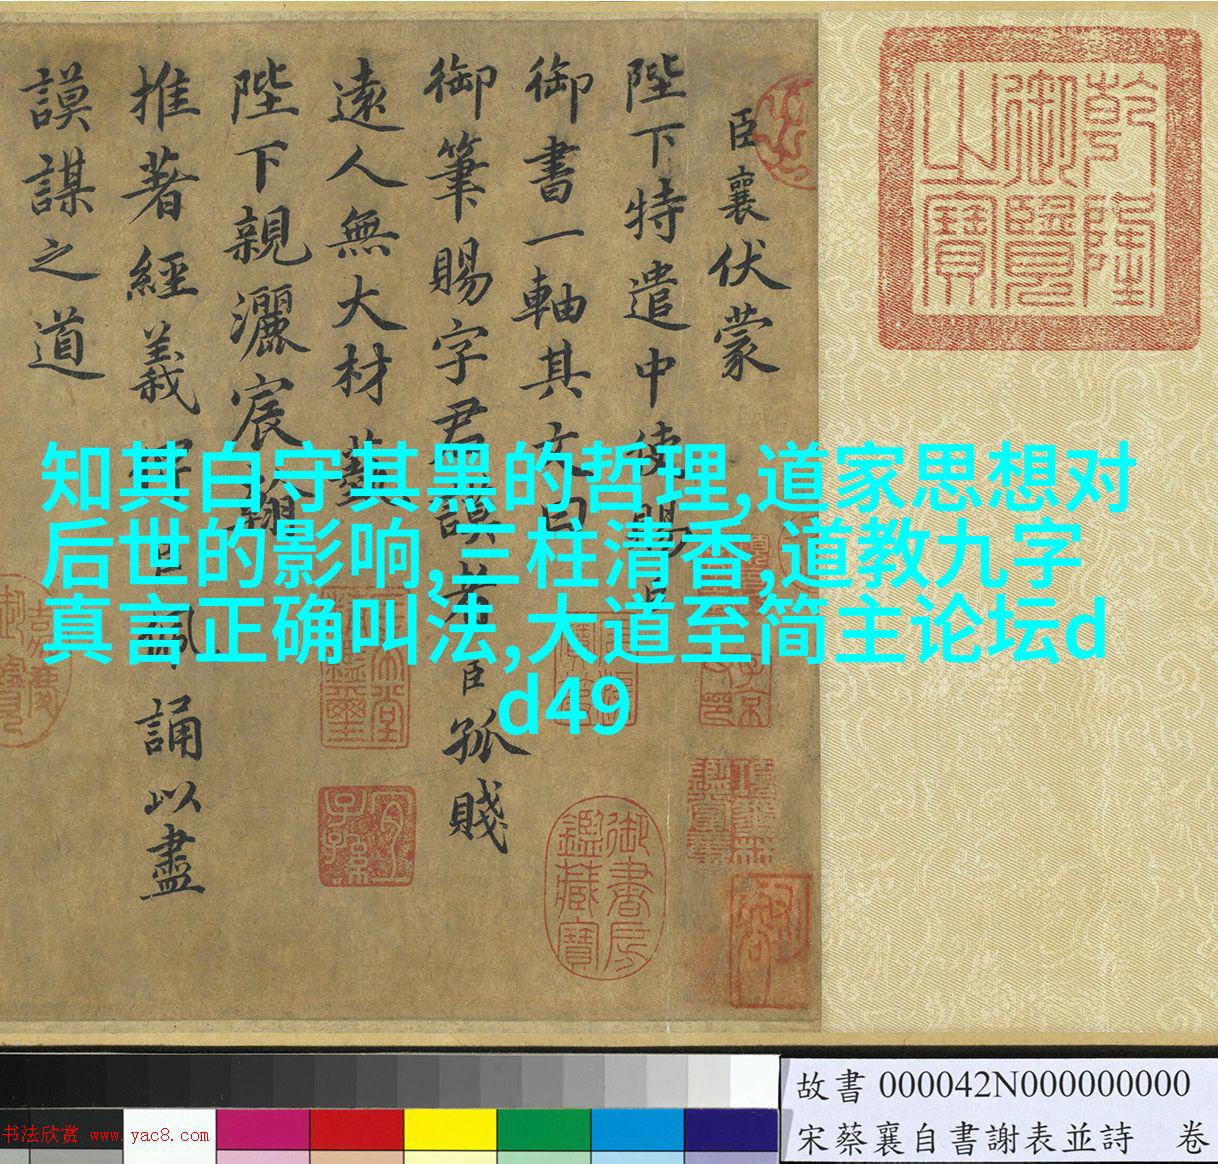 臣襄伏蒙
陛下特遣中使賜臣
御書一軸其文曰
御筆賜字君謨者臣孤賤
遠人無大材藝
陛下親灑宸翰
推著經義
誦以盡
謨謀之道
乾隆御覽之寶
御書房鑑藏寶
宜子孫
知其白守其黑的哲理,道家思想对
后世的影响,三柱清香,道教九字
真言正确叫法,大道至简主论坛d
d49
故書 000042N000000000
宋蔡襄自書謝表並詩 卷
书法欣赏 www.yac8.com